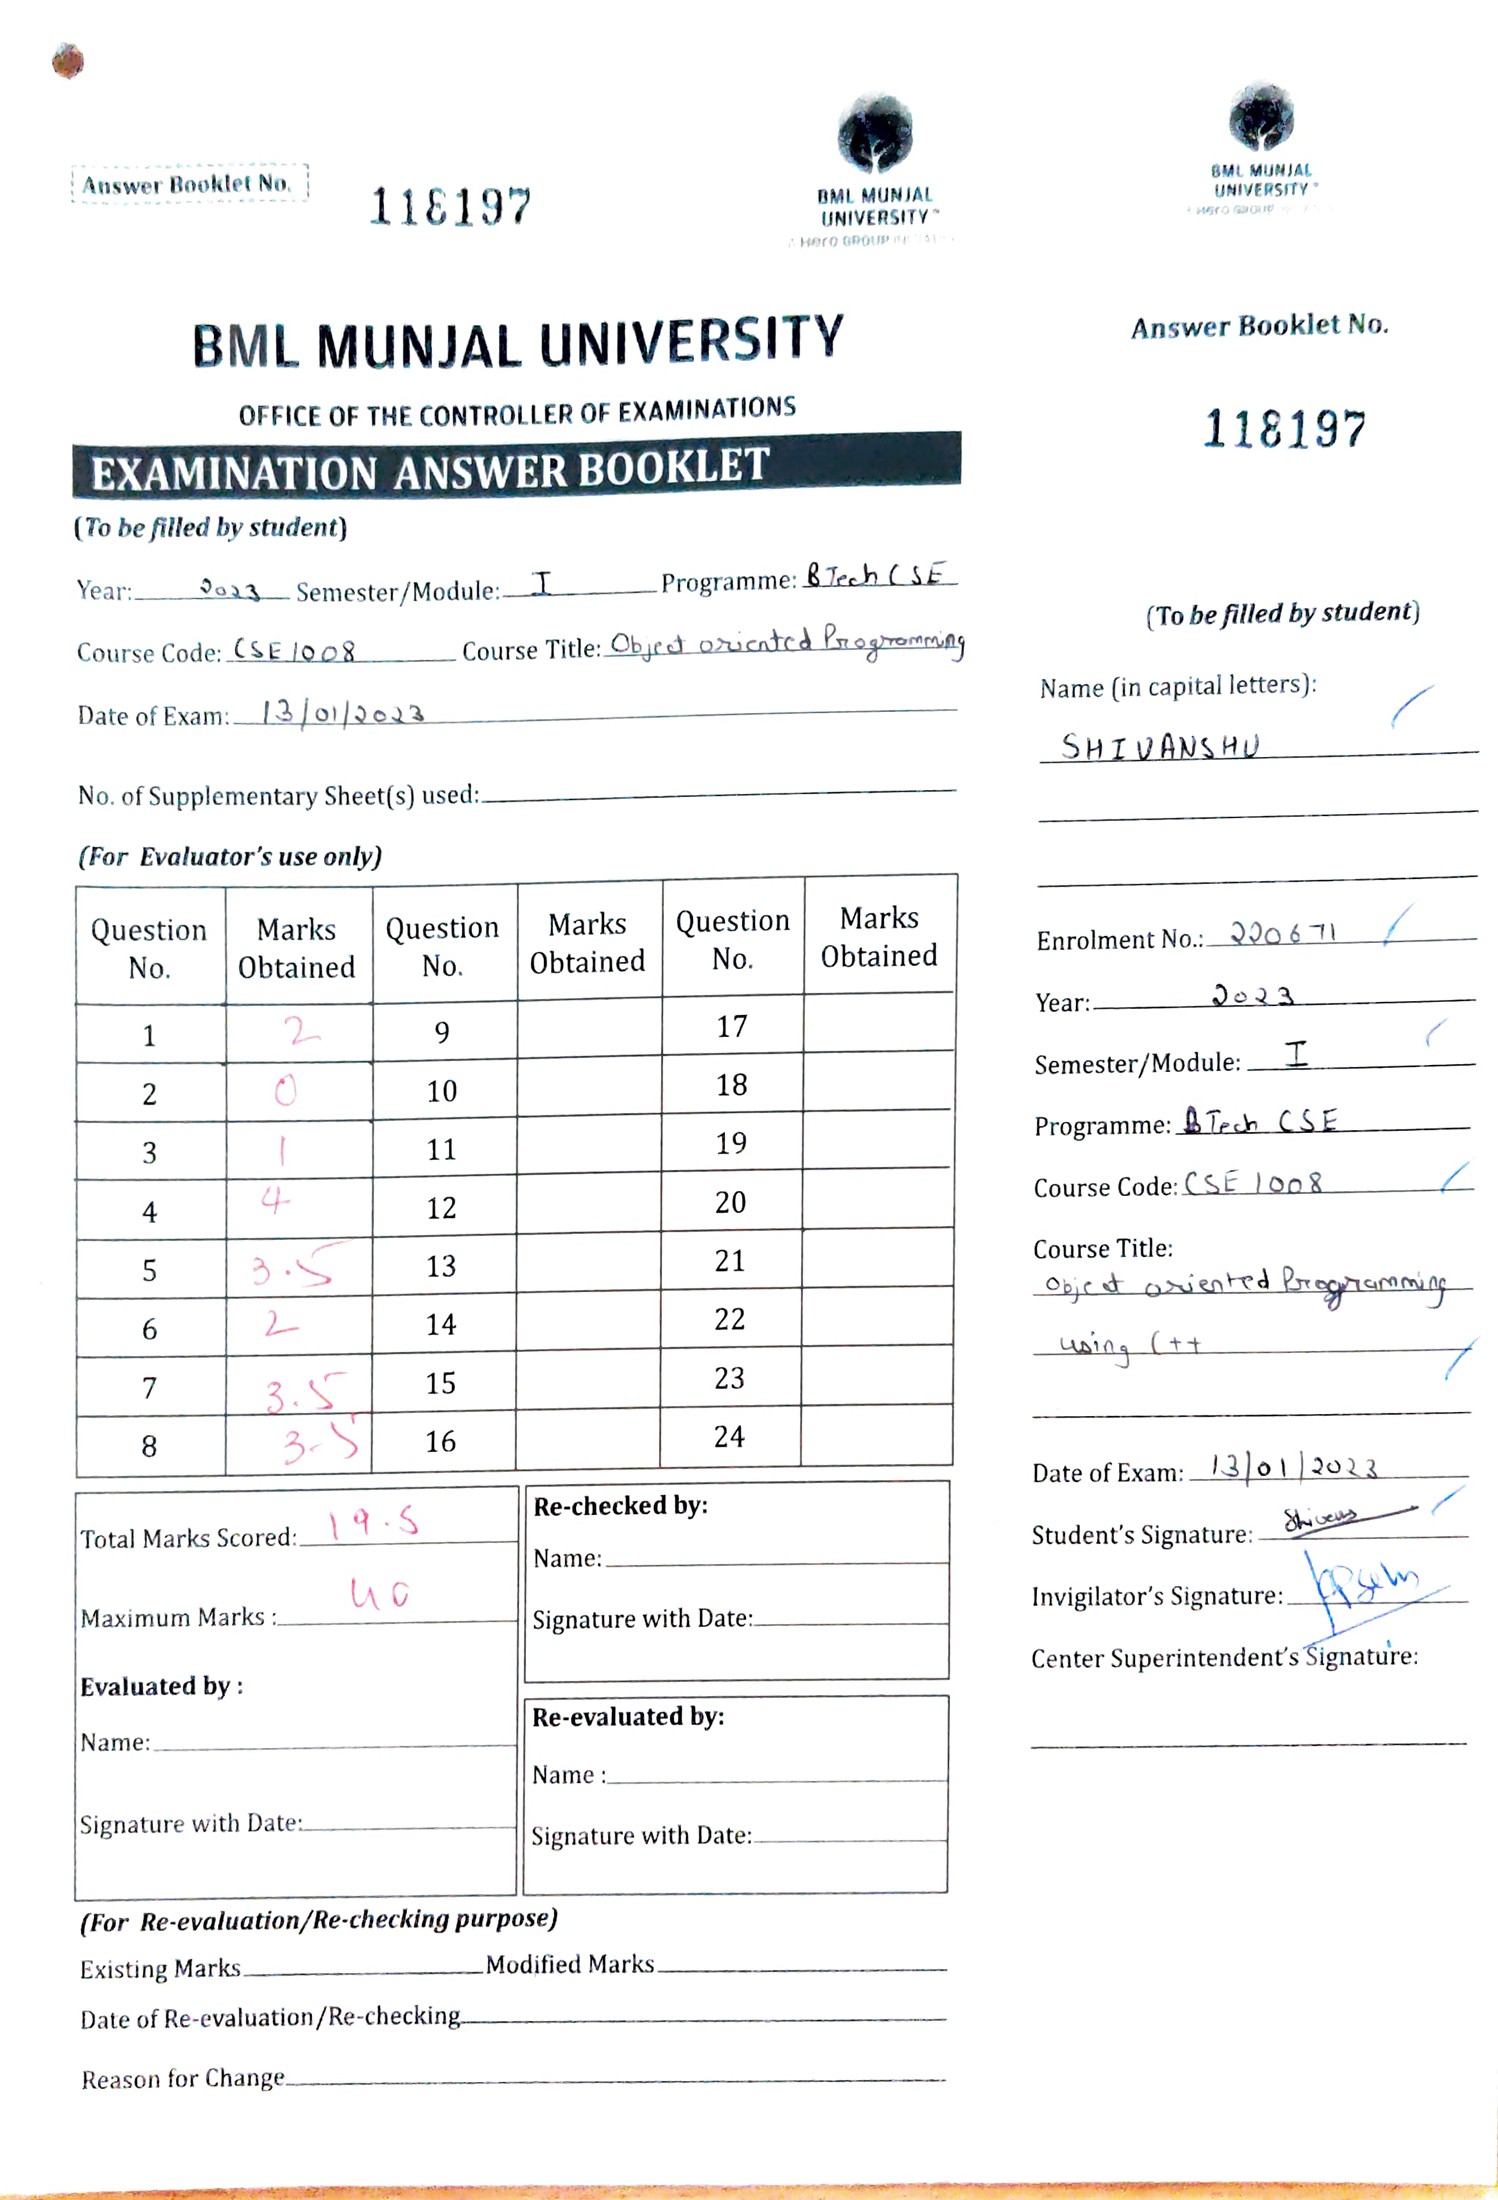 Answer Booklet No.
118197
BML MUNJAL
UNIVERSITY
A Hero GROUP
BML MUNJAL UNIVERSITY
OFFICE OF THE CONTROLLER OF EXAMINATIONS
EXAMINATION ANSWER BOOKLET
(To be filled by student)
Year: 2023 Semester/Module: I Programme: BTech CSE
Course Code: CSE1008 Course Title: Object oriented Programming
Date of Exam: 13/01/2023
No. of Supplementary Sheet(s) used:
(For Evaluator's use only)
Question No. Marks Obtained Question No. Marks Obtained Question No. Marks Obtained
1 2 9 17
2 0 10 18
3 1 11 19
4 4 12 20
5 3.5 13 21
6 2 14 22
7 3.5 15 23
8 3.5 16 24
Total Marks Scored: 19.5
Maximum Marks : 40
Evaluated by :
Name:
Signature with Date:
Re-checked by:
Name:
Signature with Date:
Re-evaluated by:
Name :
Signature with Date:
(For Re-evaluation/Re-checking purpose)
Existing Marks Modified Marks
Date of Re-evaluation/Re-checking
Reason for Change
BML MUNJAL
UNIVERSITY
Hero GROUP
Answer Booklet No.
118197
(To be filled by student)
Name (in capital letters):
SHIVANSHU
Enrolment No.: 220671
Year: 2023
Semester/Module: I
Programme: BTech CSE
Course Code: CSE1008
Course Title:
Object oriented Programming
using C++
Date of Exam: 13/01/2023
Student's Signature:
Invigilator's Signature:
Center Superintendent's Signature: